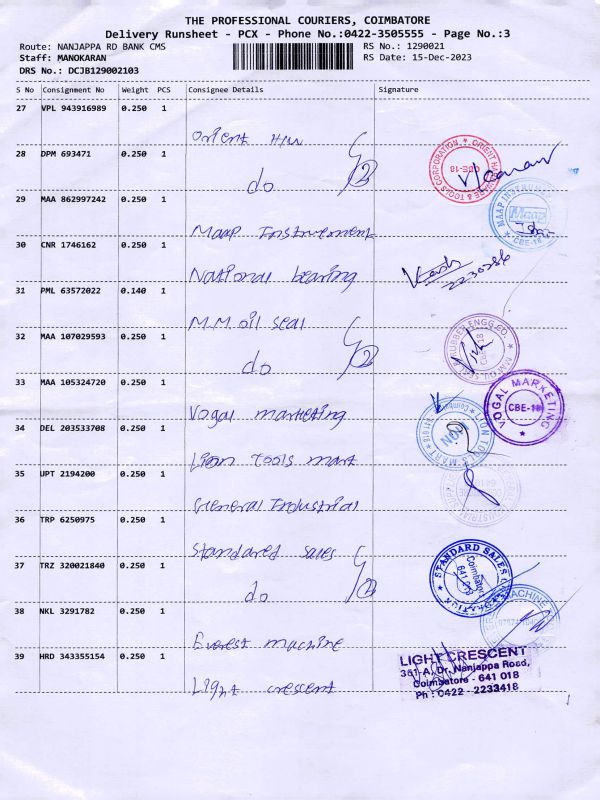 THE PROFESSIONAL COURIERS, COIMBATORE
Delivery Runsheet - PCX - Phone No.:0422-3505555 - Page No.:3
Route: NANJAPPA RD BANK CMS
RS No.: 1290021
Staff: MANOKARAN
RS Date: 15-Dec-2023
DRS No.: DCJB129002103
S No Consignment No Weight PCS Consignee Details Signature
27 VPL 943916989 0.250 1
Orient H/W
28 DPM 693471 0.250 1
do
ORIENT HARDWARE & TOOLS CORPORATION
CBE-18
29 MAA 862997242 0.250 1
Maap Instrument
MAAP INSTRUMENT
Maap
CBE-18
30 CNR 1746162 0.250 1
National bearing
2230286
31 PML 63572022 0.140 1
M.M. oil seal
32 MAA 107029593 0.250 1
do
RUBBER ENGG.CO.
CBE-18
33 MAA 105324720 0.250 1
Vogal marketing
VOGAL MARKETING
CBE-18
34 DEL 203533708 0.250 1
Lion Tools mart
LION TOOLS MART
LION
35 UPT 2194200 0.250 1
General Industrial
36 TRP 6250975 0.250 1
Standared sales
37 TRZ 320021840 0.250 1
do
STANDARD SALES
Coimbatore
641 018
38 NKL 3291782 0.250 1
Everest machine
MACHINE
39 HRD 343355154 0.250 1
Light crescent
LIGHT CRESCENT
361-A, Dr. Nanjappa Road,
Coimbatore - 641 018
Ph : 0422 - 2233418